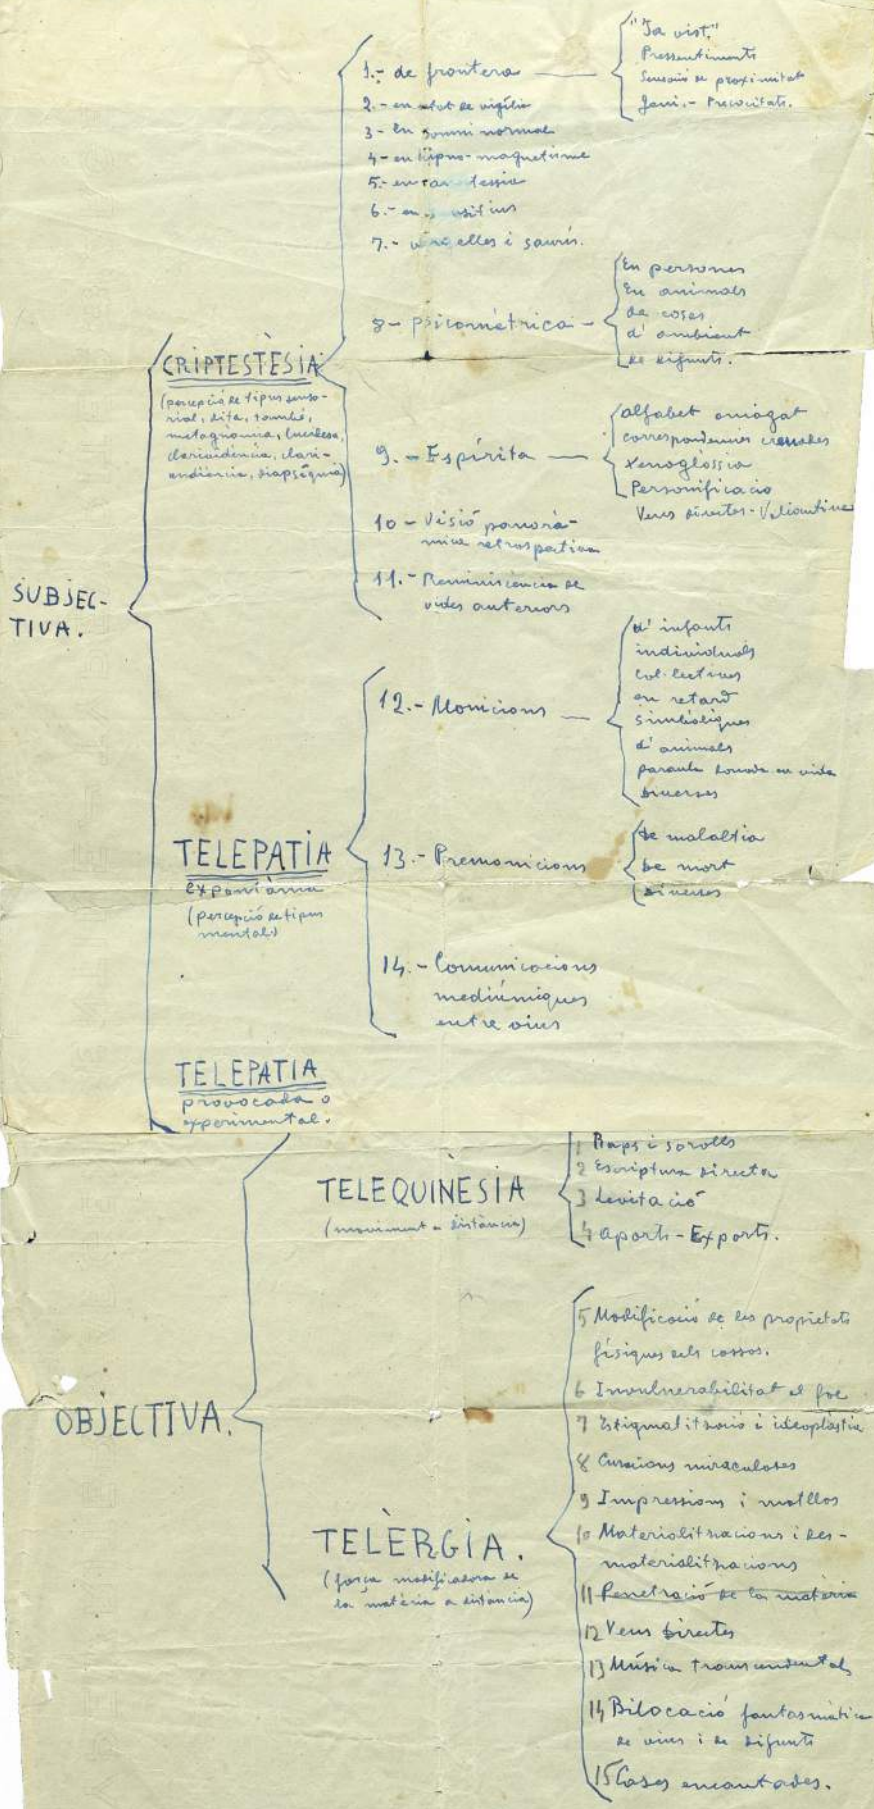 SUBJEC-
TIVA.
CRIPTESTÈSIA
(percepció de tipus senso-
rial, dita, també,
metagnomia, lucidesa,
clarividència, clari-
audiència, diapsíquia)
1.- de frontera
"Ja vist."
Pressentiments
Sensació de proximitat
Geni.- Precocitats.
2.- en estat de vigília
3- En somni normal
4- en hipno-magnetisme
5.- en
6.- en
7.- i saurís.
8- psicomètrica -
En persones
En animals
de coses
d'ambient
de difunts.
9.- Espírita
alfabet amagat
correspondències creuades
xenoglòssia
Personificació
Veus directes - Valiantine
10- Visió panorà-
mica retrospectiva
11.- Reminiscència de
vides anteriors
TELEPATIA
expontània
(percepció de tipus
mental)
12.- Monicions
d'infants
individuals
col·lectives
en retard
simbòliques
d'animals
paraula donada en vida
diverses
13.- Premonicions
de malaltia
de mort
diverses
14.- Comunicacions
mediúmniques
entre vius
TELEPATIA
provocada o
experimental.
OBJECTIVA.
TELEQUINÈSIA
(moviment a distància)
1 Raps i sorolls
2 Escriptura directa
3 Levitació
4 Aports - Exports.
TELÈRGIA.
(força modificadora de
la matèria a distància)
5 Modificació de les propietats
físiques dels cossos.
6 Invulnerabilitat al foc
7 Estigmatització i ideoplàstia
8 Curacions miraculoses
9 Impressions i motllos
10 Materialitzacions i des-
materialitzacions
11 Penetració de la matèria
12 Veus directes
13 Música transcendental
14 Bilocació fantasmàtica
de vius i de difunts
15 Cases encantades.